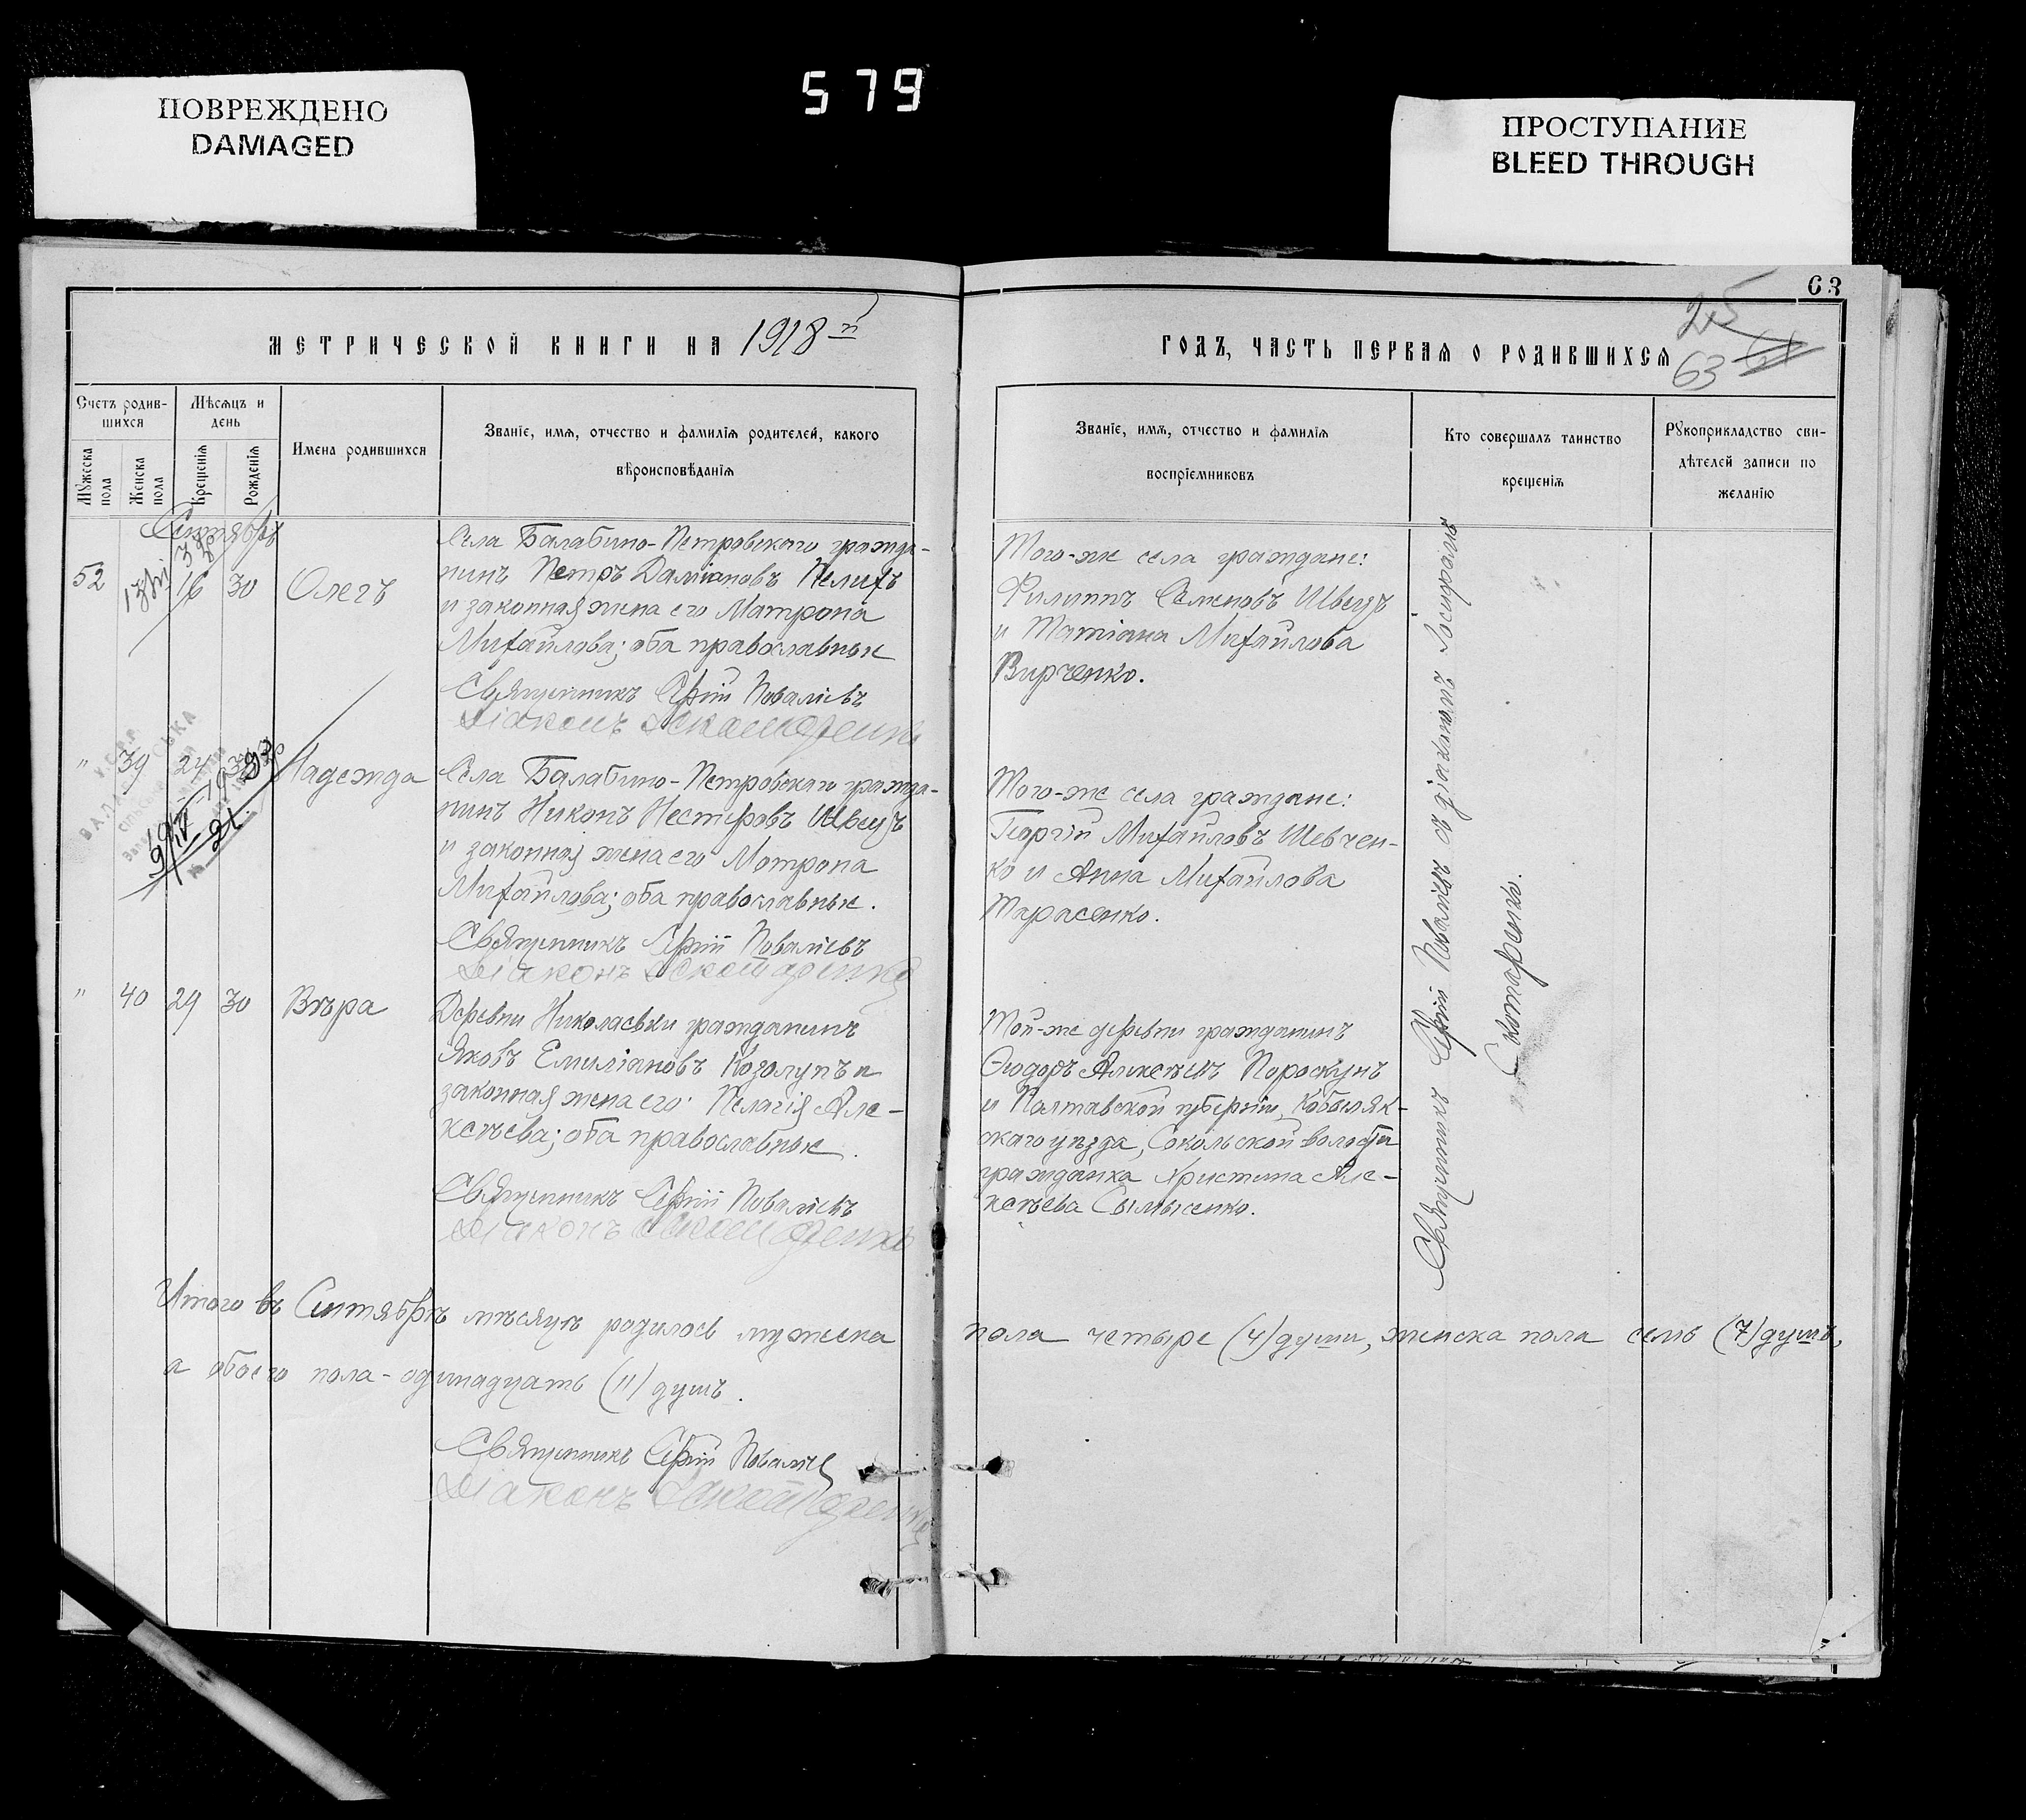 ПОВРЕЖДЕНО
DAMAGED
579
ПРОСТУПАНИЕ
BLEED THROUGH
63
25
63
МЕТРИЧЕСКОЙ КНИГИ НА 1918 й
ГОДЪ, ЧАСТЬ ПЕРВАЯ О РОДИВШИХСЯ
Счетъ родив-
шихся
Мѣсяцъ и
день
Мужеска
пола
Женска
пола
Крещенія
Рожденія
Имена родившихся
Званіе, имя, отчество и фамилія родителей, какого
вѣроисповѣданія
Званіе, имя, отчество и фамилія
воспріемниковъ
Кто совершалъ таинство
крещенія
Рукоприкладство сви-
дѣтелей записи по
желанію
Сентябрь
52 16 30 Олегъ
Села Балабино-Петровскаго гражда-
нинъ Петръ Даміановъ Пелихъ
и законная жена его Матрона
Михайлова; оба православные
Священникъ Сергій Поваліевъ
Діаконъ Скотаренко
Того-же села граждане:
Филиппъ Семеновъ Швецъ
и Татіана Михайлова
Вирченко.
" 39 24 Надежда
Села Балабино-Петровскаго гражда-
нинъ Никонъ Нестеровъ Швецъ
и законная жена его Мотрона
Михайлова; оба православные.
Священникъ Сергій Поваліевъ
Діаконъ Скотаренко
Того-же села граждане:
Георгій Михайловъ Шевчен-
ко и Анна Михайлова
Тарасенко.
" 40 29 30 Вѣра
Деревни Николаевки гражданинъ
Яковъ Емиліановъ Козолупъ и
законная жена его Пелагія Але-
ксѣева; оба православные.
Священникъ Сергій Поваліевъ
Діаконъ Скотаренко
Той-же деревни гражданинъ
Ѳеодоръ Алексѣевъ Пороскунъ
и Полтавской губерніи, Кобыляк-
скаго уѣзда, Сокольской волости
гражданка Христина Але-
ксѣева
Священникъ Сергій Поваліевъ съ діакономъ
Скотаренко.
Итого въ Сентябрѣ мѣсяцѣ родилось мужеска пола четыре (4) души, женска пола семь (7) душъ,
а обоего пола - одинадцать (11) душъ.
Священникъ Сергій Поваліевъ
Діаконъ Скотаренко